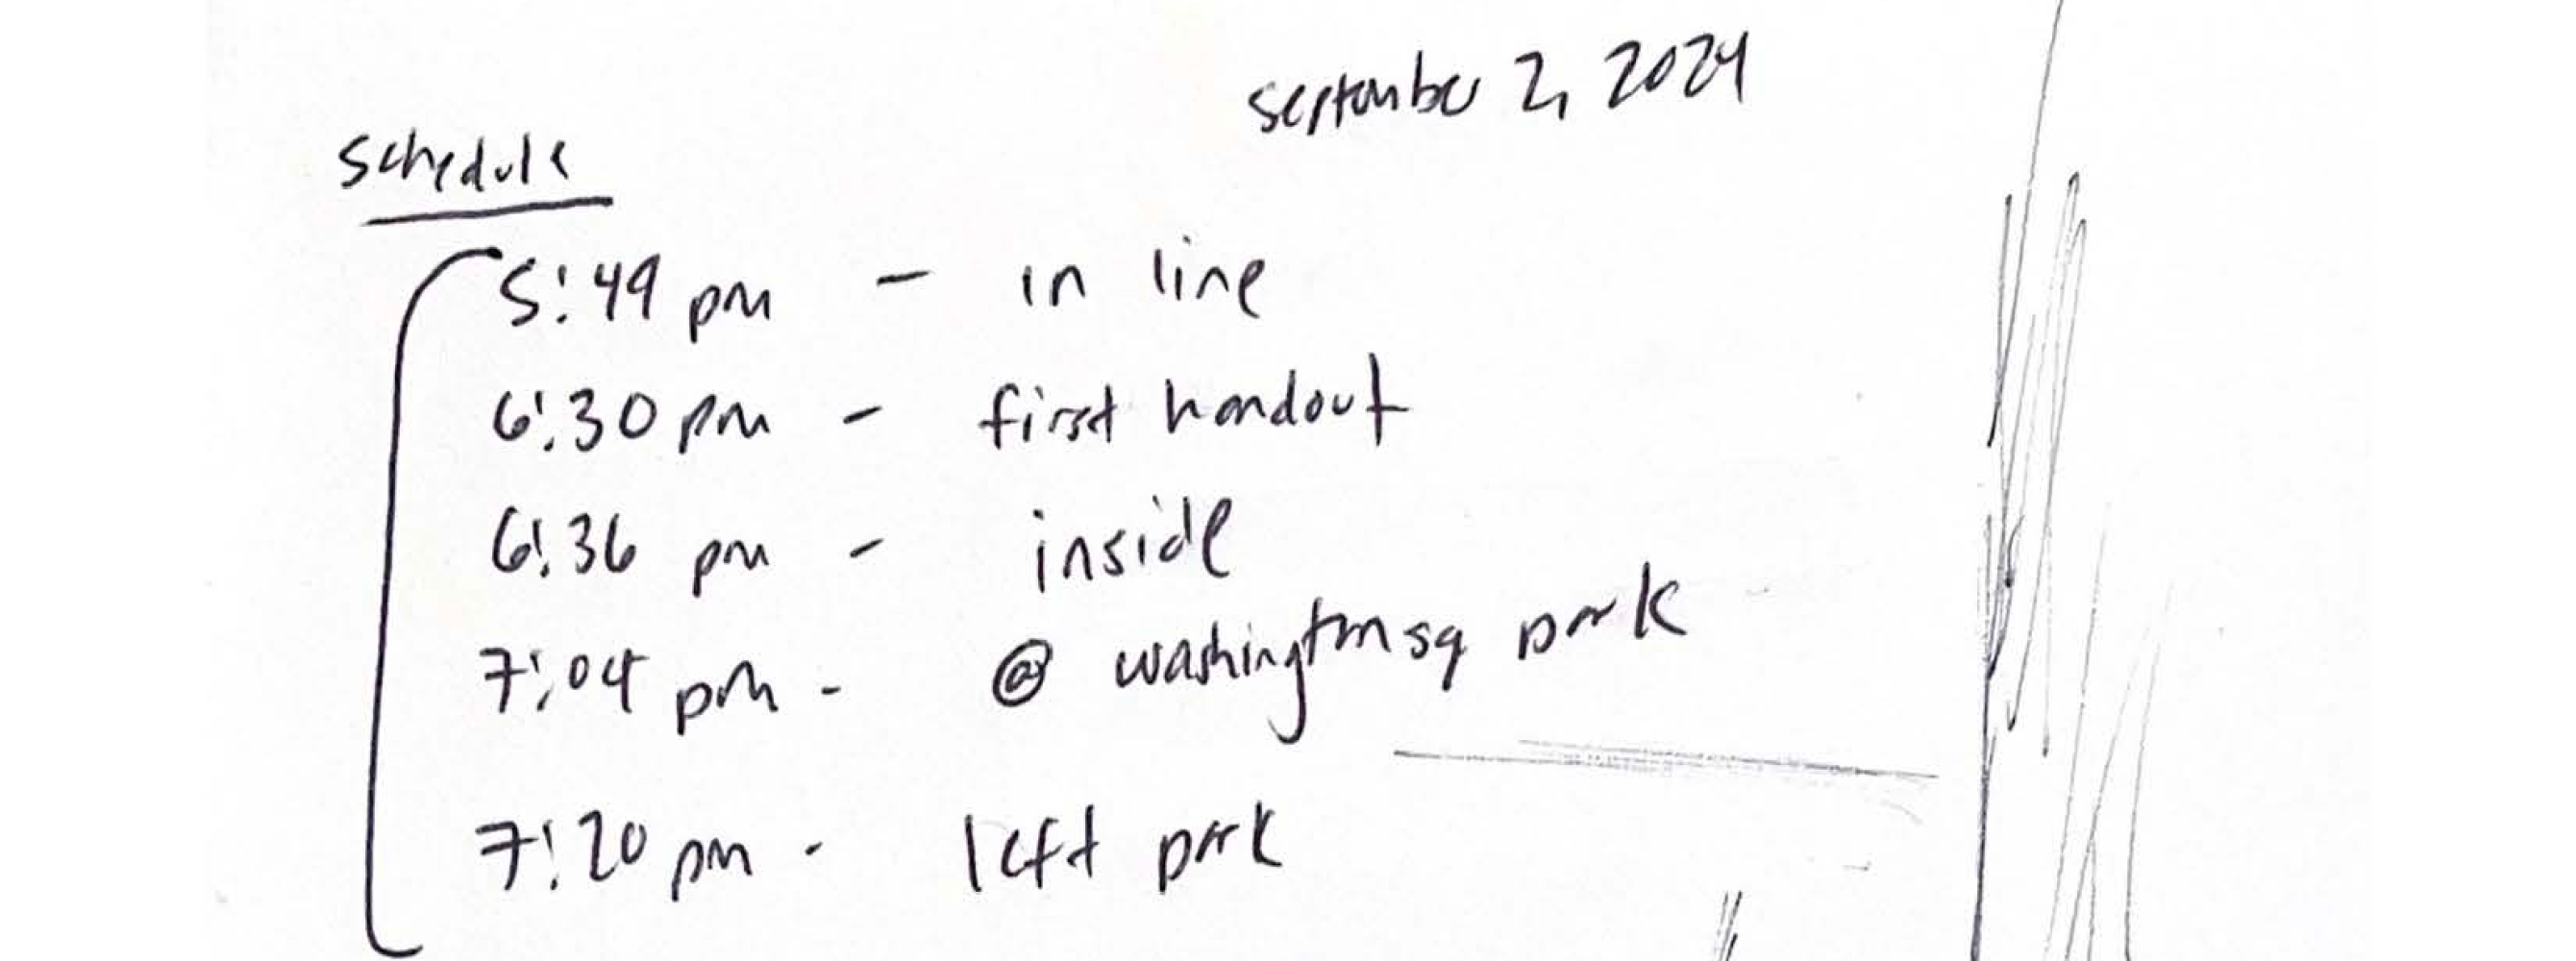 september 2, 2024
schedule
5:49 pm - in line
6:30 pm - first handout
6:36 pm - inside
7:04 pm - @ washington sq park
7:20 pm - left park